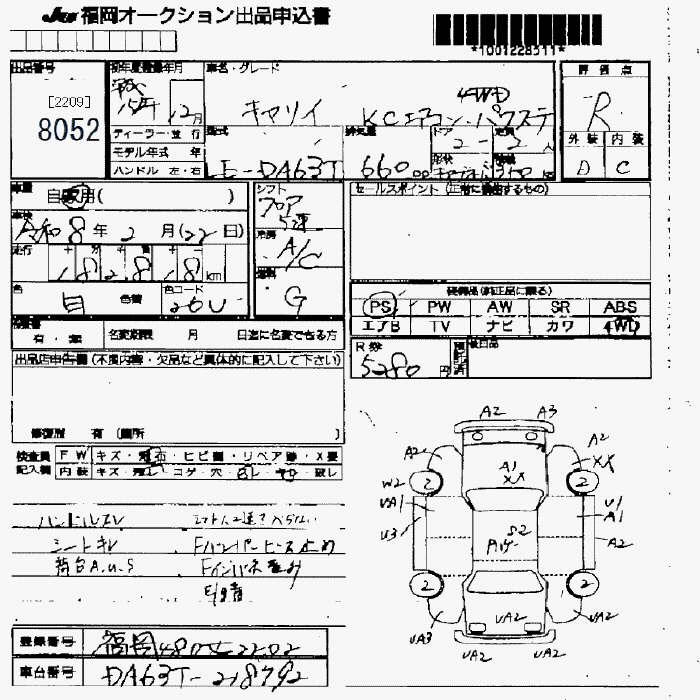 JU 福岡オークション出品申込書
*1001228511*
出品番号
[2209]
8052
初年度登録年月
平成
15年 12月
車名・グレード
キャリイ KCエアコン・パワステ
4WD
評価点
R
ディーラー・並行
モデル年式 年
ハンドル 左・右
型式
LE-DA63T
排気量
660
ドア
2
定員
2人
形状
積載
350
外装 内装
D C
車歴
自家用( )
車検
令和8年2月(22日)
走行
1 8 2 8 1 8 km
シフト
フロア
5速
冷房
A/C
燃料
G
セールスポイント (正常に機能するもの)
色
白
色替
色コード
26U
装備品(純正品に限る)
PS PW AW SR ABS
エアB TV ナビ カワ 4WD
有・無
名変期限 月 日迄に名変できる方
R券
5280円
預託済
後日品
出品店申告欄 (不具合内容・欠品など具体的に記入して下さい)
修復歴 有 (箇所 )
検査員
記入欄
FW キズ・飛石・ヒビ割・リペア跡・X要
内装 キズ・汚レ・コゲ・穴
ハンドルスレ
シートキレ Fバンパービス止め
荷台A.U.S
A2 A3
A2 A2
A1
XX XX
W2 2 2
UA1 U1
A1
U3 S2 A2
2 2
UA2 UA2
UA3
UA2 UA2
登録番号
福岡480 2202
車台番号
DA63T-218792